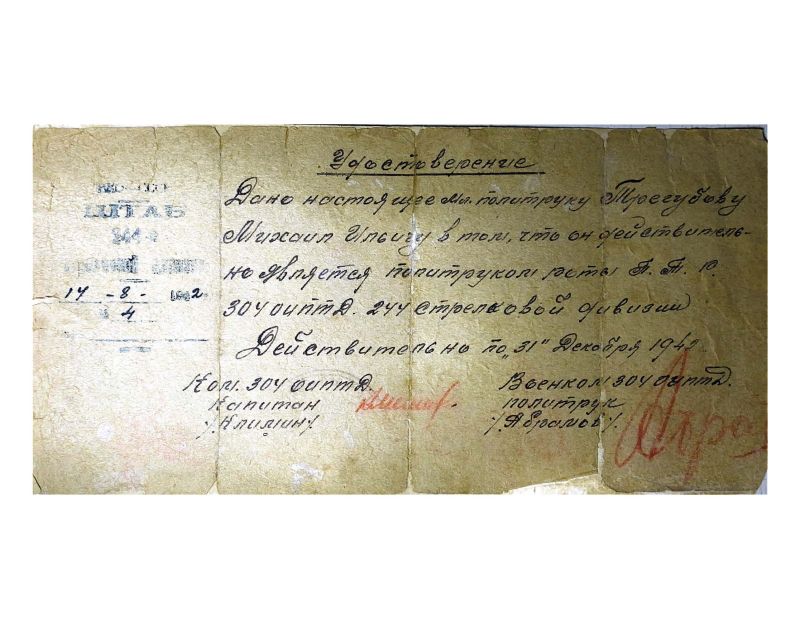 Удостоверение
Дано настоящее мл. политруку Трегубову
Михаил Ильичу в том, что он действитель-
но является политруком роты П. Т. Р.
304 оиптД. 244 стрелковой дивизии
Действительно по „31" Декабря 1942
ШТАБ
244-й
14 -8- 1942
№ 4
Ком. 304 оиптД.
Капитан
/Климин/
Военком 304 оиптД.
политрук
/Абрамов/.